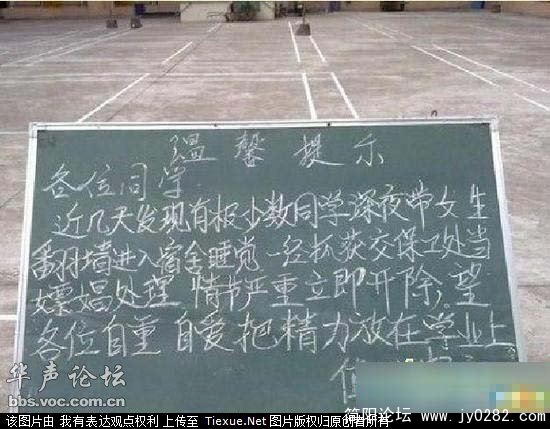 温馨提示
各位同学
近几天发现有极少数同学深夜带女生
翻墙进入宿舍睡觉 一经抓获交保卫处当
嫖娼处理 情节严重立即开除,望
各位自重 自爱把精力放在学业上
华声论坛
bbs.voc.com.cn
该图片由 我有表达观点权利 上传至 Tiexue.Net 图片版权归原创者所有
简阳论坛 www.jy0282.com